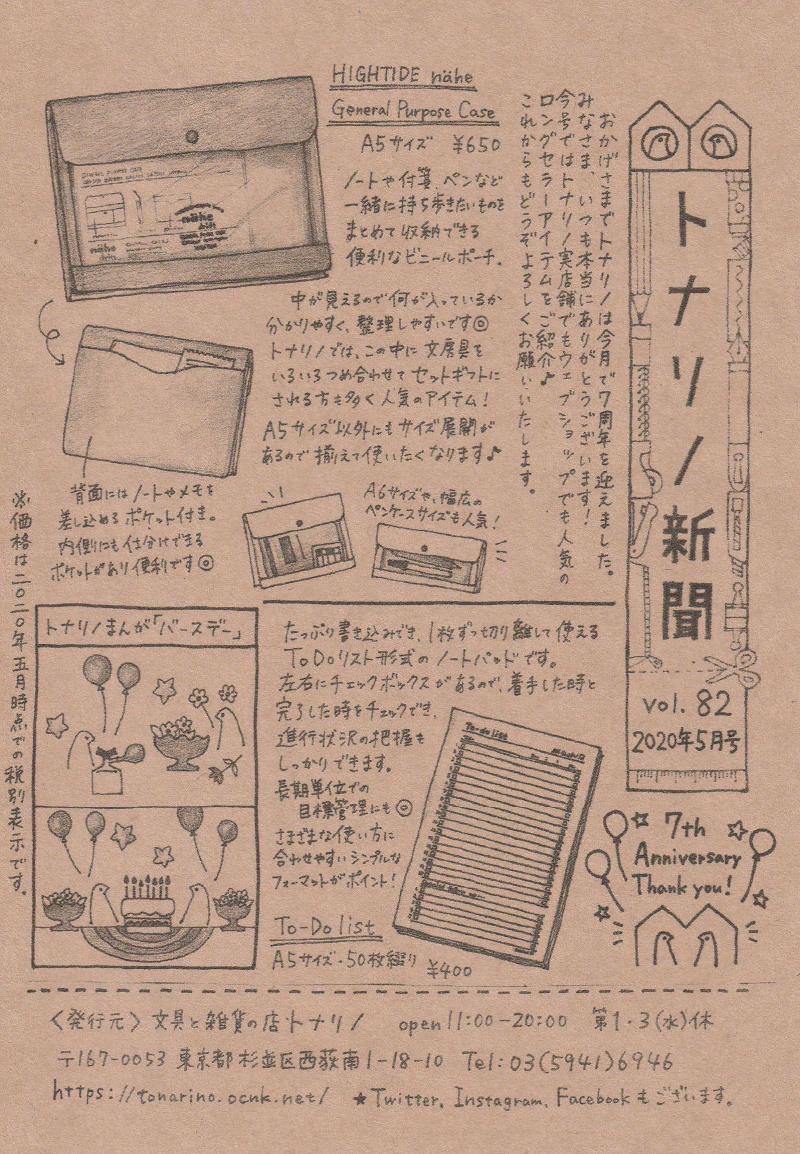 トナリノ新聞
vol. 82
2020年5月号
おかげさまでトナリノは今月で7周年を迎えました。
みなさま、いつも本当にありがとうございます!
今号ではトナリノ実店舗でもウェブショップでも人気の
ロングセラーアイテムをご紹介♪
これからもどうぞよろしくお願いいたします。
HIGHTIDE nähe
General Purpose Case
A5サイズ ¥650
ノートや付箋、ペンなど
一緒に持ち歩きたいものを
まとめて収納できる
便利なビニールポーチ。
中が見えるので何が入っているか
分かりやすく、整理しやすいです◎
トナリノでは、この中に文房具を
いろいろつめ合わせてセットギフトに
される方も多く人気のアイテム!
A5サイズ以外にもサイズ展開が
あるので揃えて使いたくなります♪
nähe
背面にはノートやメモを
差し込めるポケット付き。
内側にも仕分けできる
ポケットがあり便利です◎
A6サイズや、幅広の
ペンケースサイズも人気!
※価格は二〇二〇年五月時点での税別表示です。
トナリノまんが「バースデー」
たっぷり書き込みでき、1枚ずつ切り離して使える
ToDoリスト形式のノートパッドです。
左右にチェックボックスがあるので、着手した時と
完了した時をチェックでき、
進行状況の把握も
しっかりできます。
長期単位での
目標管理にも◎
さまざまな使い方に
合わせやすいシンプルな
フォーマットがポイント!
To-do list
To-Do list
A5サイズ・50枚綴り
¥400
7th
Anniversary
Thank you!
〈発行元〉文具と雑貨の店トナリノ open 11:00-20:00 第1・3(水)休
〒167-0053 東京都杉並区西荻南1-18-10 Tel:03(5941)6946
https://tonarino.ocnk.net/ ★Twitter, Instagram, Facebookもございます。